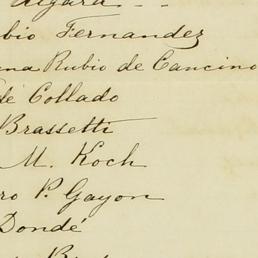 Algara - -
bio Fernandez
na Rubio de Cancino
de Collado
Brassetti
M. Koch
ro P. Gayon
Dondé